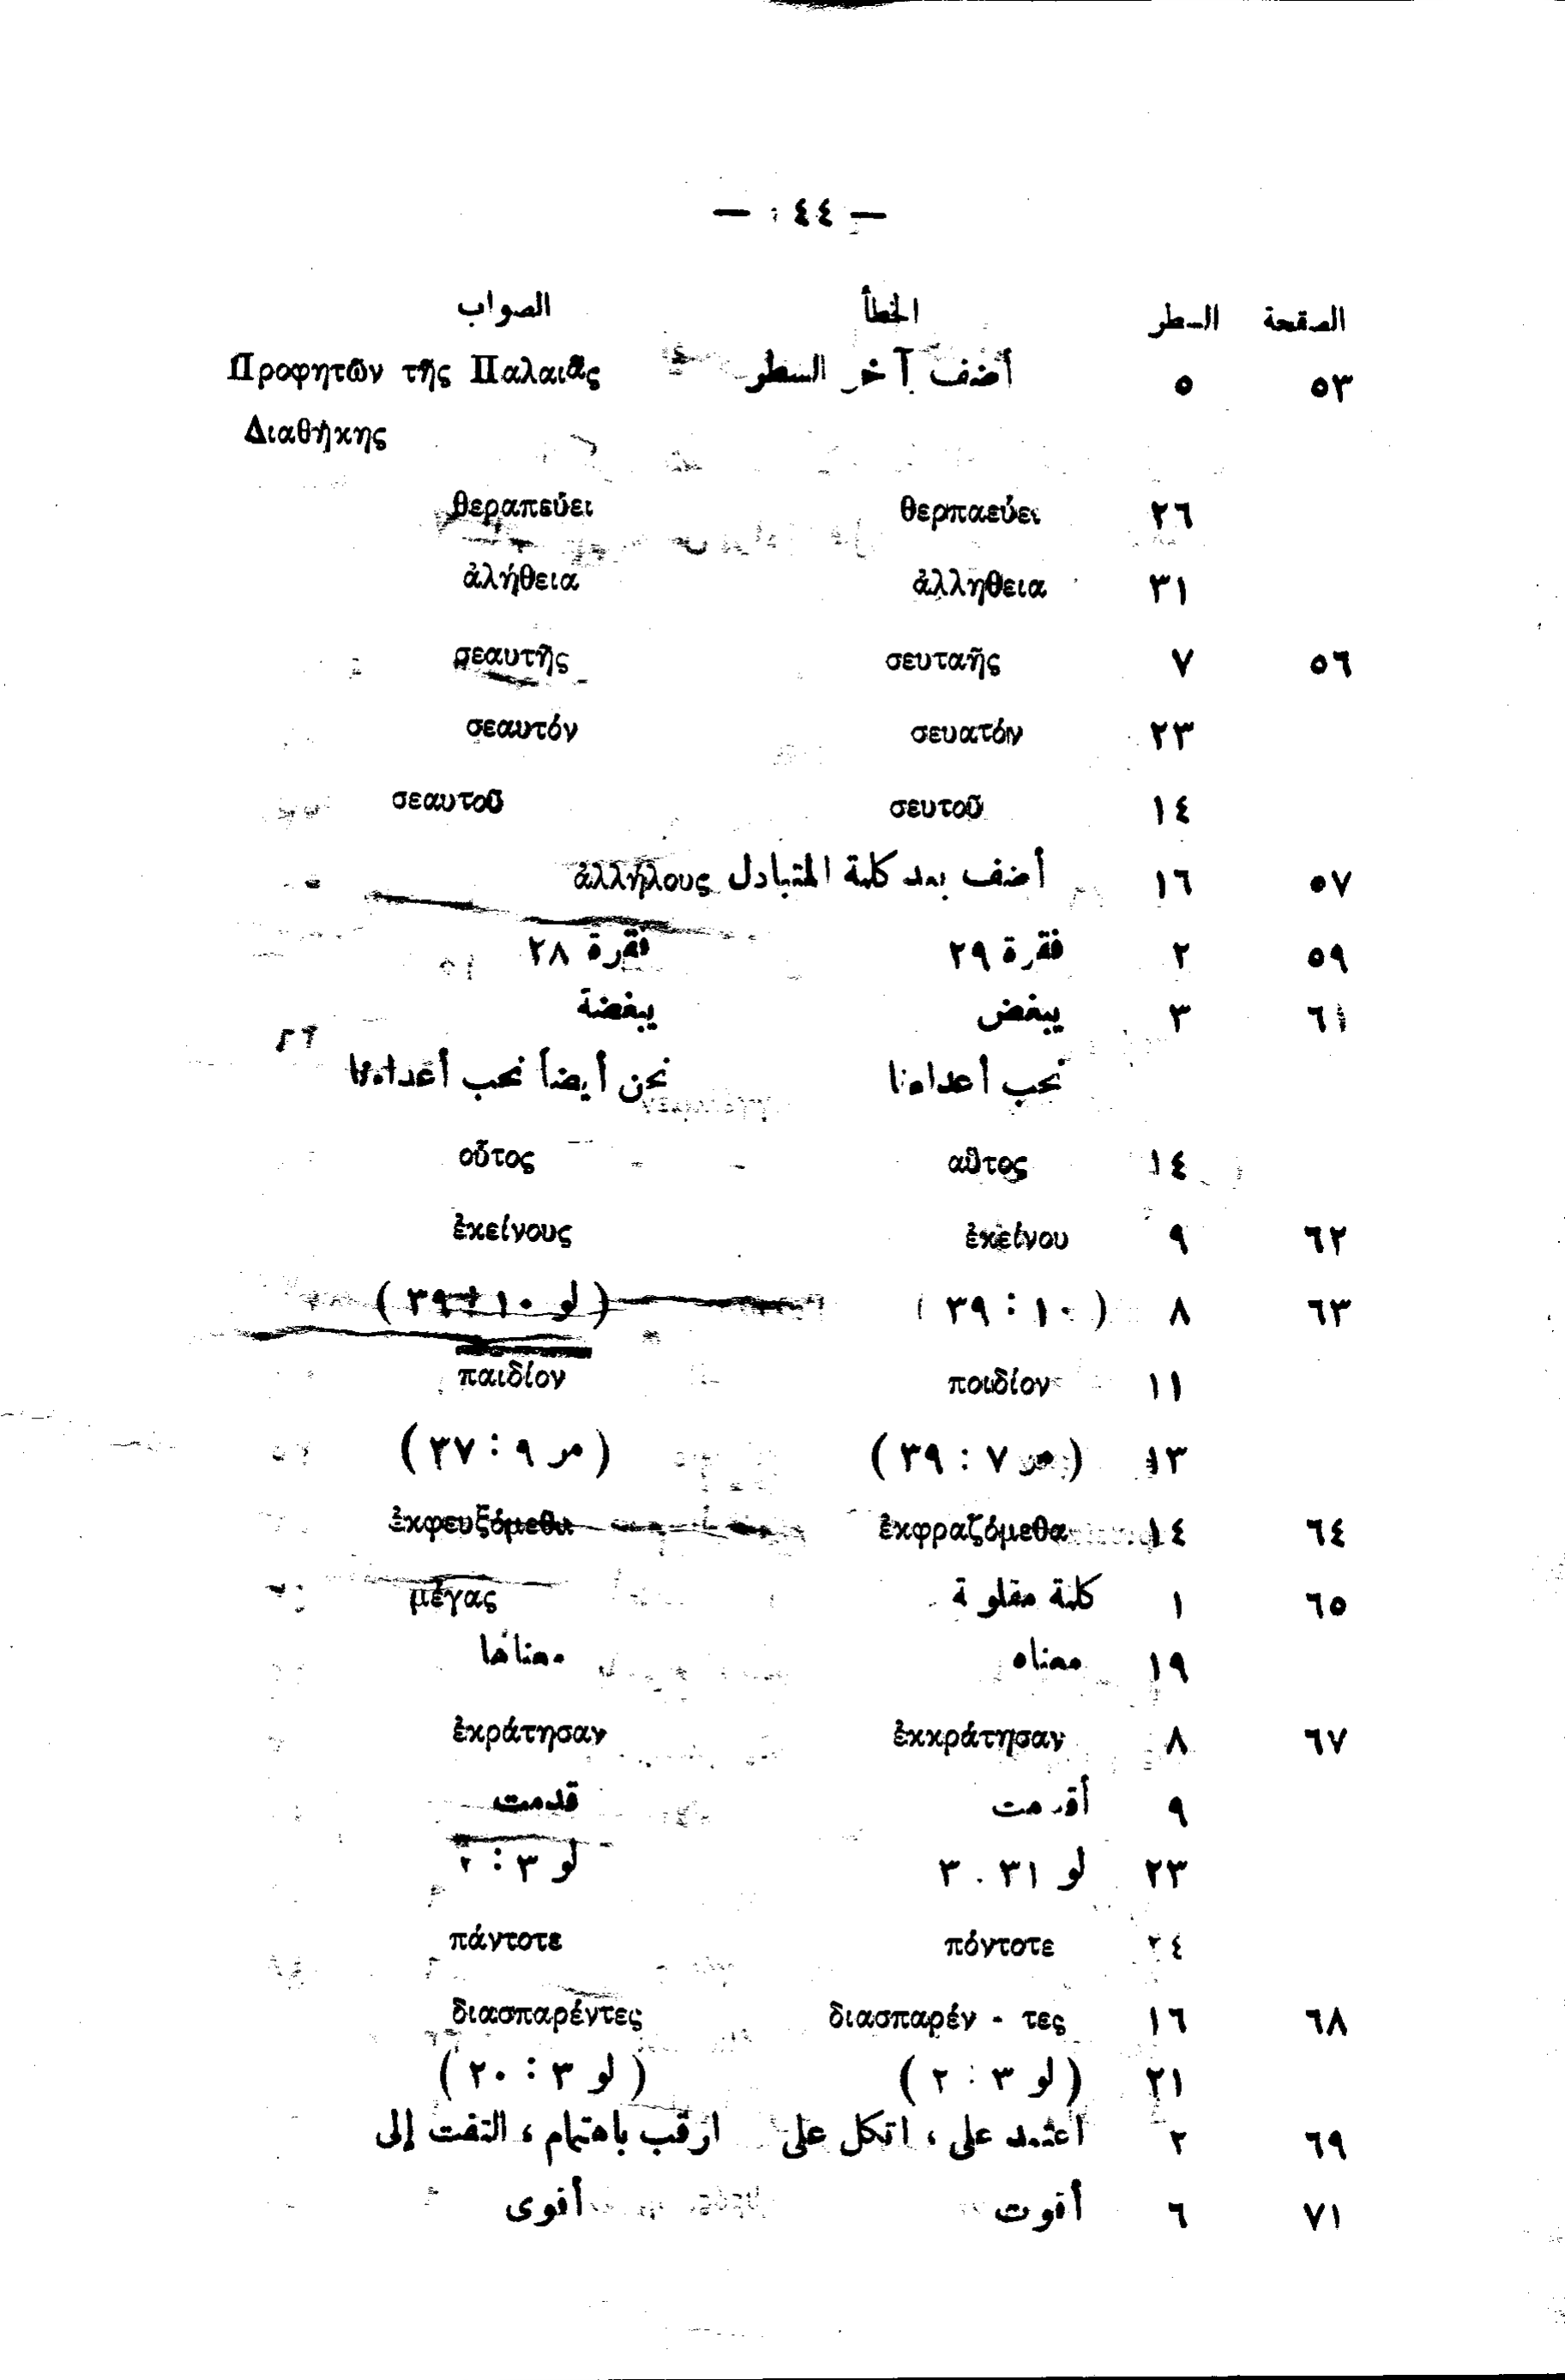 — ٤٤ —
الصفحة السطر الخطأ الصواب
٥٣ ٥ أضف آخر السطر Προφητῶν τῆς Παλαιᾶς
Διαθήκης
٢٦ θερπαεύει θεραπεύει
٣١ ἀλληθεια ἀλήθεια
٥٦ ٧ σευταῆς σεαυτῆς
٢٣ σευατόν σεαυτόν
١٤ σευτοῦ σεαυτοῦ
٥٧ ١٦ أضف بعد كلمة المتبادل ἀλλήλους
٥٩ ٢ فقرة ٢٩ فقرة ٢٨
٦١ ٣ يبغض يبغضة
نحب أعداءنا نحن أيضاً نحب أعداءنا
١٤ αὗτος οὗτος
٦٢ ٩ ἐκείνου ἐκείνους
٦٣ ٨ (١٠ : ٣٩) (لو ١٠ : ٣٩)
١١ ποιδίον παιδίον
١٣ (مر ٧ : ٣٩) (مر ٩ : ٣٧)
٦٤ ١٤ ἐκφραζόμεθα ἐκφευξόμεθα
٦٥ ١ كلمة مقلوبة μέγας
١٩ معناه معناها
٦٧ ٨ ἐκκράτησαν ἐκράτησαν
٩ أقدمت قدمت
٢٣ لو ٣١ . ٣ لو ٣ : ٢
٢٤ πόντοτε πάντοτε
٦٨ ١٦ διασπαρέν - τες διασπαρέντες
٢١ (لو ٣ : ٢) (لو ٣ : ٢٠)
٦٩ ٢ اعتمد على ، اتكل على ارقب باهتمام ، التفت إلى
٧١ ٦ أقوت أقوى